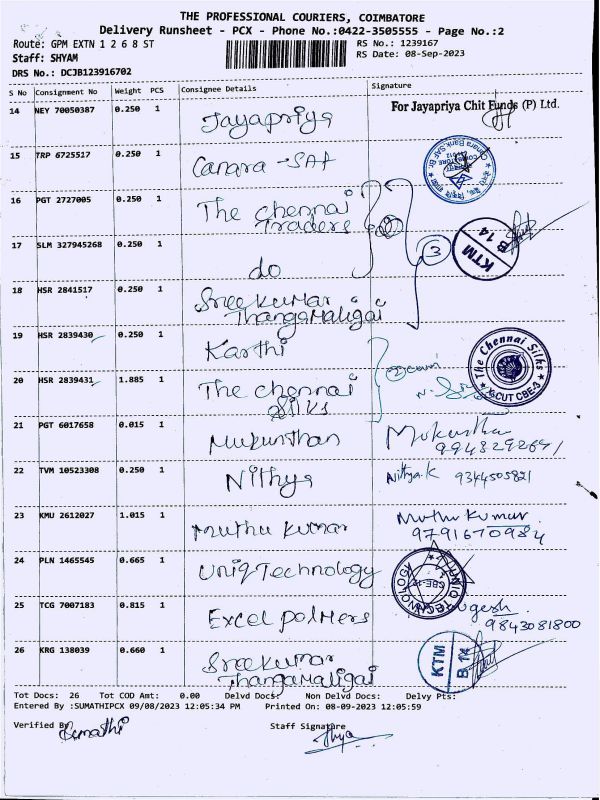 THE PROFESSIONAL COURIERS, COIMBATORE
Delivery Runsheet - PCX - Phone No.:0422-3505555 - Page No.:2
Route: GPM EXTN 1 2 6 8 ST
RS No.: 1239167
Staff: SHYAM
RS Date: 08-Sep-2023
DRS No.: DCJB123916702
S No Consignment No Weight PCS Consignee Details Signature
14 NEY 70050387 0.250 1 Jayapriya For Jayapriya Chit Funds (P) Ltd.
15 TRP 6725517 0.250 1 Canara - SAF
16 PGT 2727005 0.250 1 The Chennai
Traders
17 SLM 327945268 0.250 1 do 3 KTM B 14
18 HSR 2841517 0.250 1 Sree Kumar
Thanga Maligai
19 HSR 2839430 0.250 1 Karthi
20 HSR 2839431 1.885 1 The Chennai
Silks
The Chennai Silks
XCUT CBE-3
21 PGT 6017658 0.015 1 Mukunthan
22 TVM 10523308 0.250 1 Nithya Nithya.K 9344505821
23 KMU 2612027 1.015 1 Muthu Kumar Muthu Kumar
9791670984
24 PLN 1465545 0.665 1 Uniq Technology
25 TCG 7007183 0.815 1 Excel polmers
9843081800
26 KRG 138039 0.660 1 Sree Kumar
Thanga Maligai
KTM B 14
Tot Docs: 26 Tot COD Amt: 0.00 Delvd Docs: Non Delvd Docs: Delvy Pts:
Entered By :SUMATHIPCX 09/08/2023 12:05:34 PM Printed On: 08-09-2023 12:05:59
Verified By Sumathi
Staff Signature